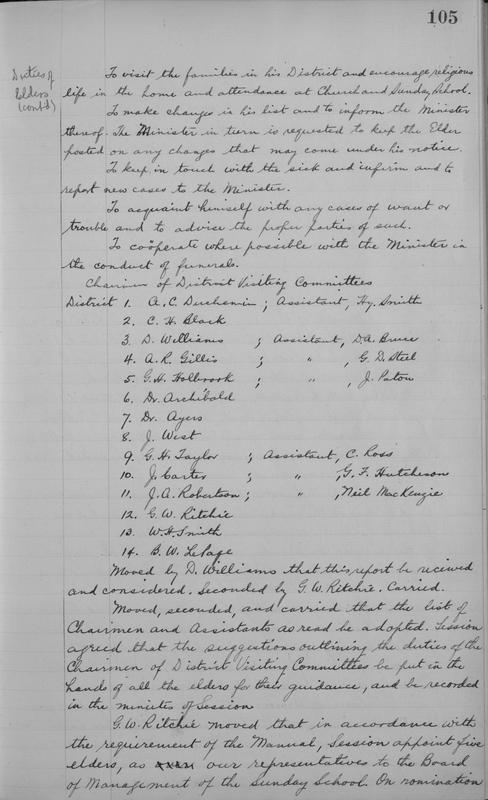 105
Duties of
Elders
(cont'd)
To visit the families in his District and encourage religious
life in the home and attendance at Church and Sunday School.
To make changes in his list and to inform the Minister
thereof. The Minister in turn is requested to keep the Elder
posted on any changes that may come under his notice.
To keep in touch with the sick and infirm and to
report new cases to the Minister.
To acquaint himself with any cases of want or
trouble and to advise the proper parties of such.
To coöperate where possible with the Minister in
the conduct of funerals.
Chairmen of District Visiting Committees
District 1. A.C. Duchemin ; Assistant, Hy. Smith
2. C.H. Black
3. D. Williams ; Assistant, D.A. Bruce
4. A.R. Gillis ; " , G.D. Steel
5. G.H. Holbrook ; " , J. Paton
6. Dr. Archibald
7. Dr. Ayers
8. J. West
9. G.H. Taylor ; Assistant, C. Ross
10. J. Carter ; " , G.F. Hutcheson
11. J.A. Robertson ; " , Neil MacKenzie
12. G.W. Ritchie
13. W.H. Smith
14. B.W. LePage
Moved by D. Williams that this report be received
and considered. Seconded by G.W. Ritchie. Carried.
Moved, seconded, and carried that the list of
Chairmen and Assistants as read be adopted. Session
agreed that the suggestions outlining the duties of the
Chairmen of District Visiting Committees be put in the
hands of all the elders for their guidance, and be recorded
in the minutes of Session
G.W. Ritchie moved that in accordance with
the requirement of the Manual, Session appoint five
elders, as our representatives to the Board
of Management of the Sunday School. On nomination